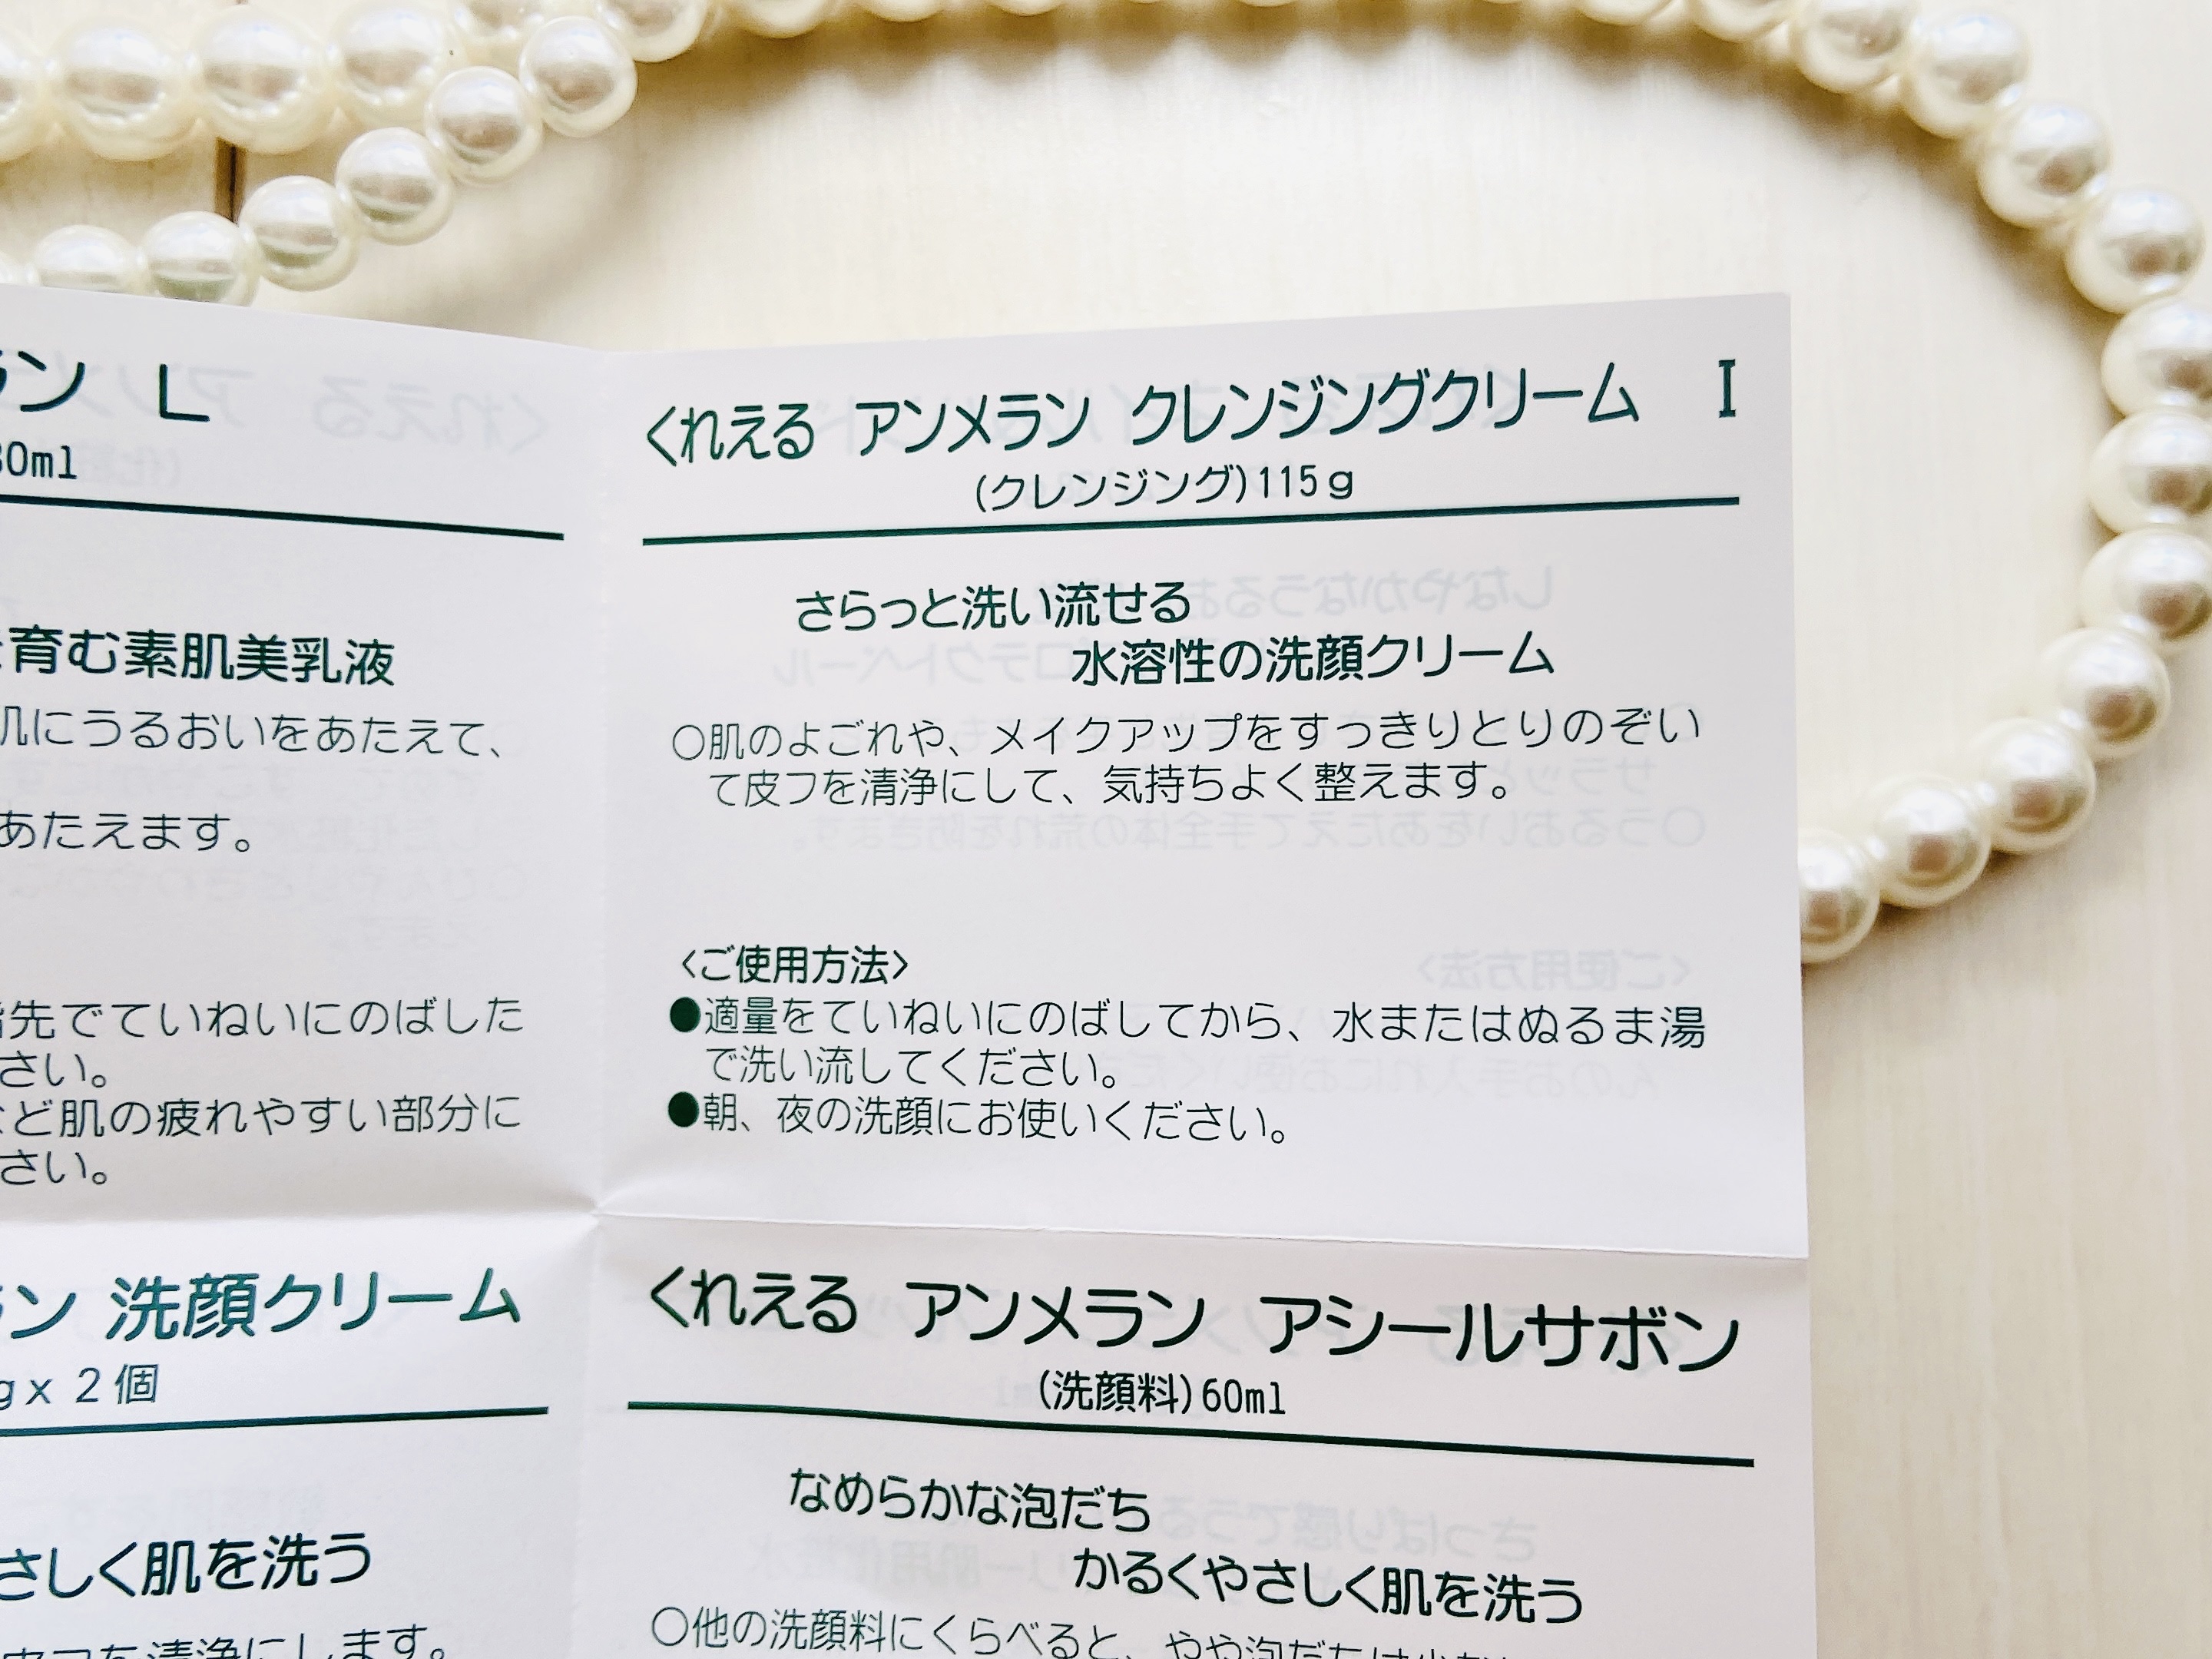 ラン L
30ml
育む素肌美乳液
肌にうるおいをあたえて、
あたえます。
先でていねいにのばした
さい。
ど肌の疲れやすい部分に
さい。
くれえる アンメラン クレンジングクリーム I
(クレンジング)115g
さらっと洗い流せる
水溶性の洗顔クリーム
○肌のよごれや、メイクアップをすっきりとりのぞい
て皮フを清浄にして、気持ちよく整えます。
<ご使用方法>
●適量をていねいにのばしてから、水またはぬるま湯
で洗い流してください。
●朝、夜の洗顔にお使いください。
ン 洗顔クリーム
gx 2個
さしく肌を洗う
皮フを清浄にします。
くれえる アンメラン アシールサボン
(洗顔料)60ml
なめらかな泡だち
かるくやさしく肌を洗う
○他の洗顔料にくらべると、やや泡だちは